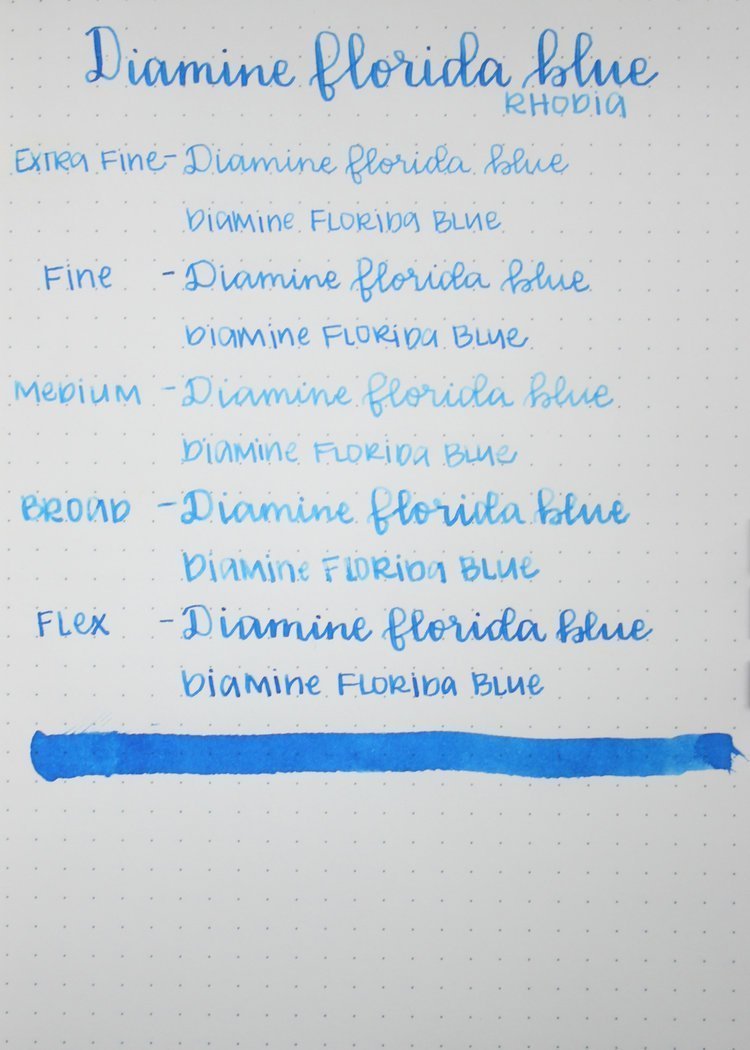 Diamine florida blue
RHODIA
Extra Fine - Diamine florida blue
Diamine FLORIDA BLUE
Fine - Diamine florida blue
Diamine FLORIDA BLUE
Medium - Diamine florida blue
Diamine FLORIDA BLUE
BROAD - Diamine florida blue
Diamine FLORIDA BLUE
FLex - Diamine florida blue
Diamine FLORIDA BLUE